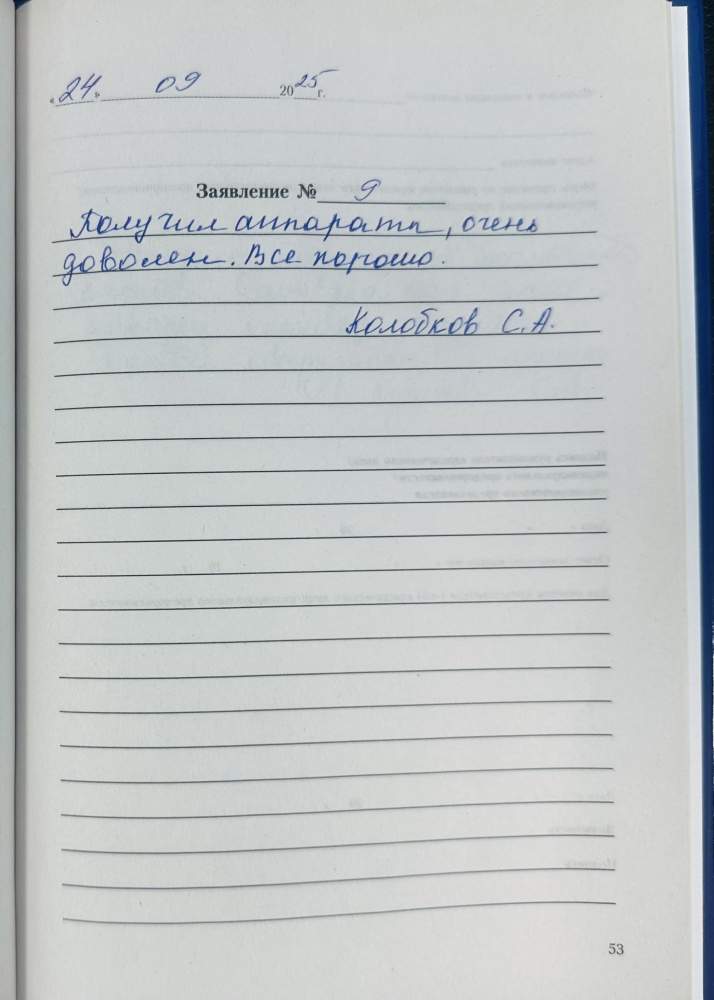 «24» 09 2025 г.
Заявление № 9
Получил аппараты, очень
доволен. Все хорошо.
Колобков С.А.
53